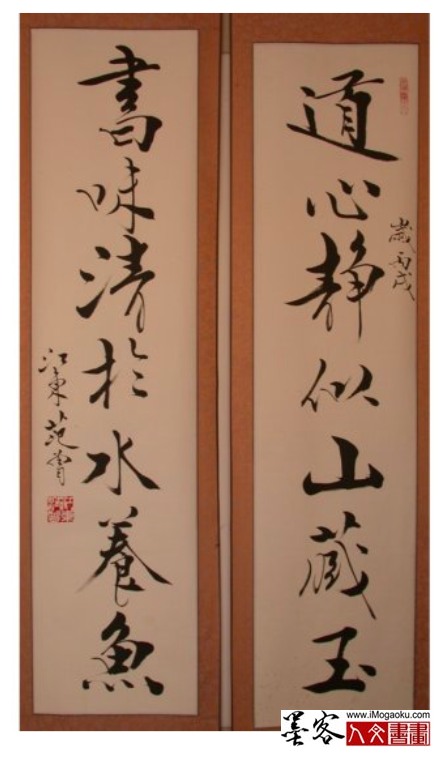 道心静似山藏玉
歲丙戌
書味清於水養魚
江東范
www.iMogaoku.com
墨客
人文書畫